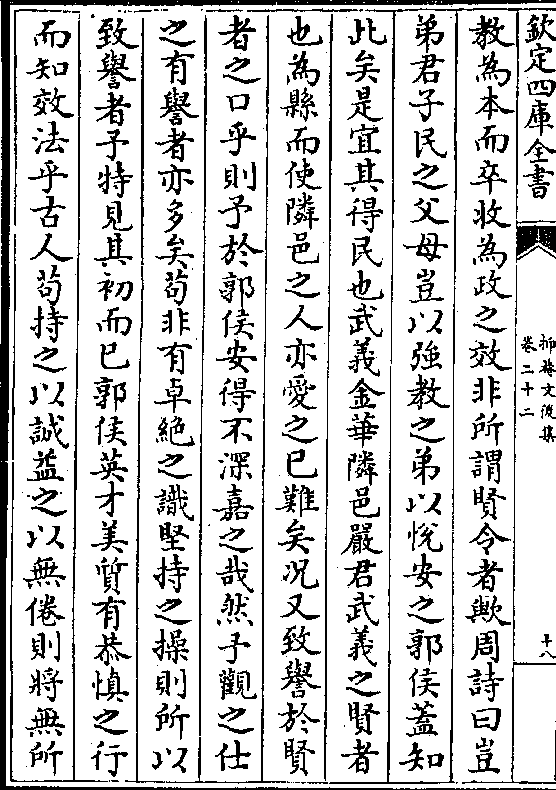 欽定四庫全書
柳梅文後集
卷二十二
十八
教為本而卒收為政之效非所謂賢令者歟周詩曰豈
弟君子民之父母豈以強教之弟以悅安之郭侯葢知
此矣是宜其得民也武義金華隣邑嚴君武義之賢者
也為縣而使隣邑之人亦愛之已難矣况又致譽於賢
者之口乎則予於郭侯安得不深嘉之哉然予觀之仕
之有譽者亦多矣苟非有卓絶之識堅持之操則所以
致譽者予特見其初而已郭侯英才美質有恭慎之行
而知效法乎古人苟持之以誠益之以無倦則將無所